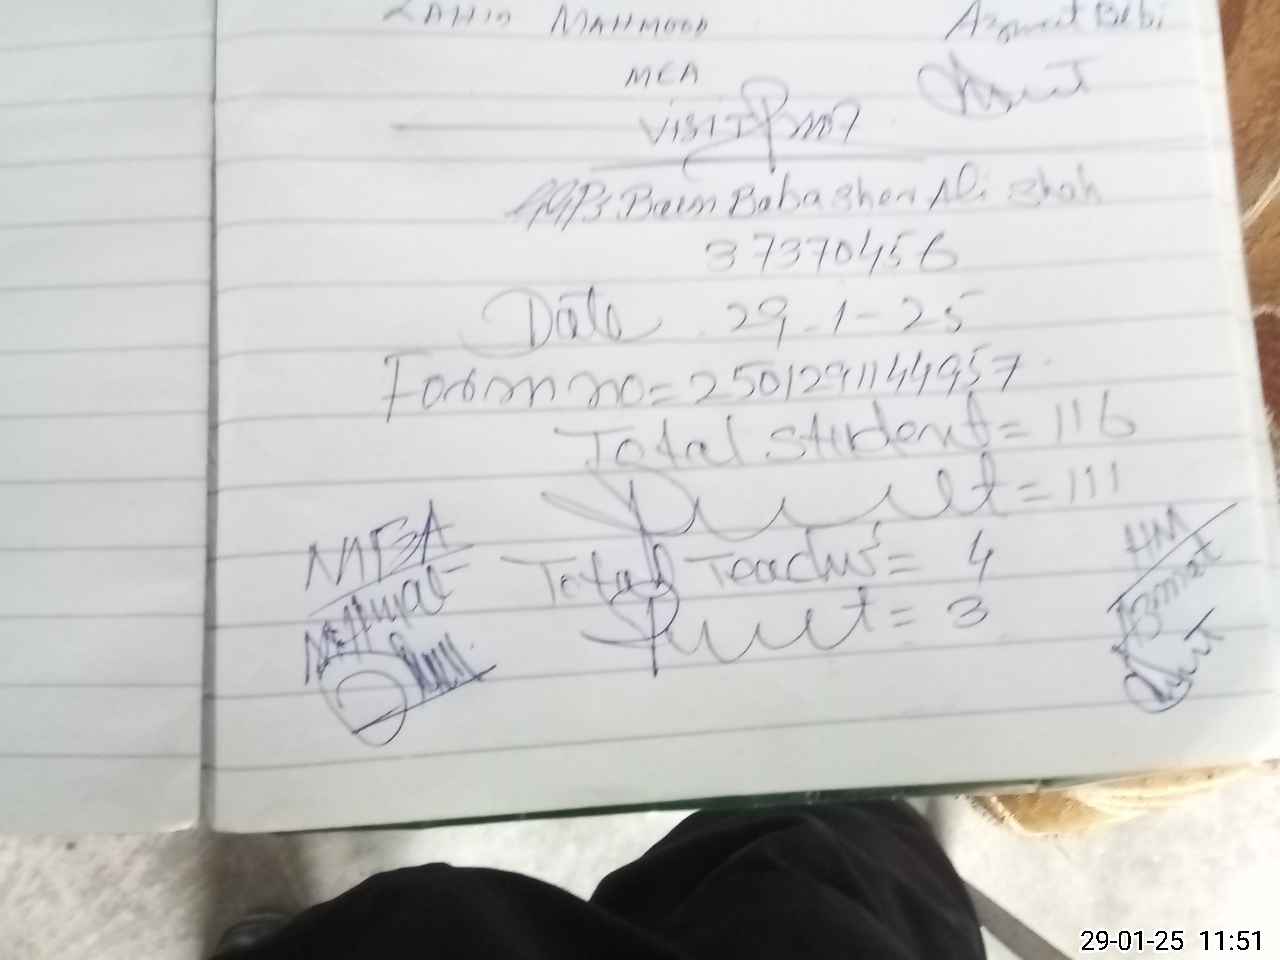 ZAHID MAHMOOD Azmat Bibi
MEA
Visit
GGPS Bain Baba Sher Ali Shah
37370456
Date 29-1-25
Form no = 2501291144957
Total Student = 116
Present = 111
Total Teachers = 4
Present = 3
HM
Azmat
29-01-25 11:51